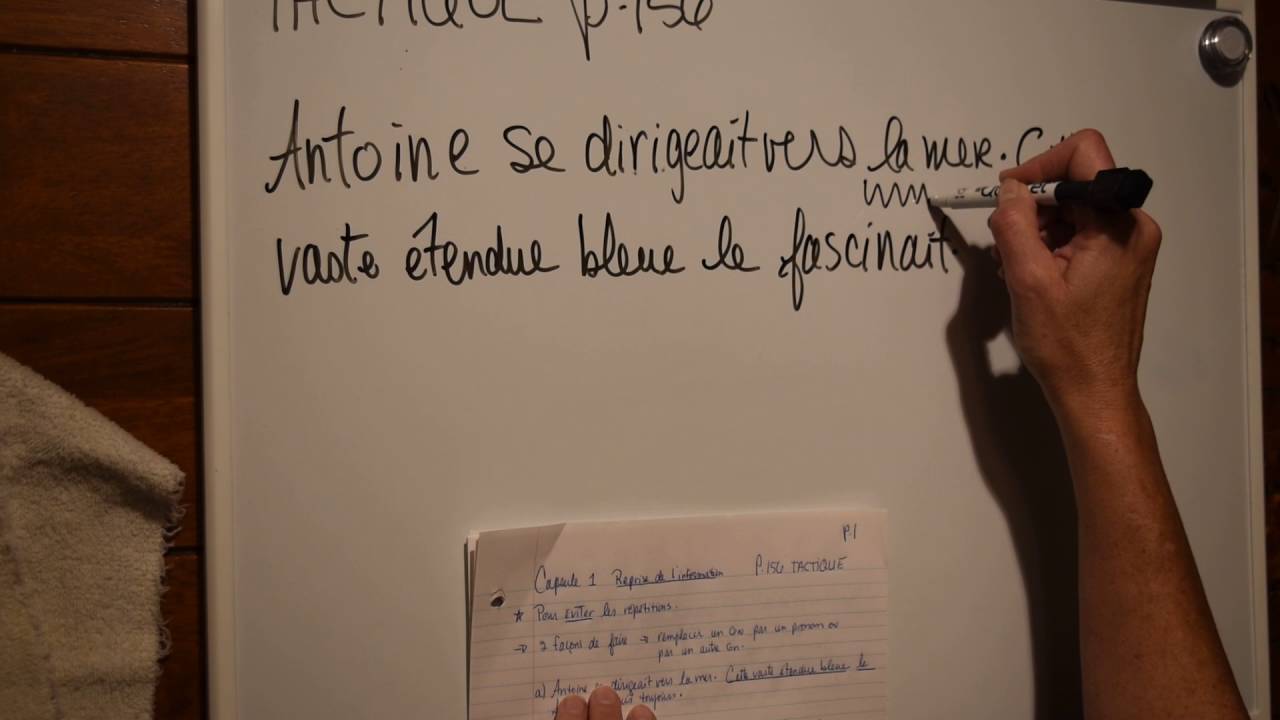 TACTIQUE p.156
Antoine se dirigeait vers la mer.
vaste étendue bleue le fascinait.
P.1
Capsule 1 Reprise de l'information P.156 TACTIQUE
* Pour éviter les répétitions.
→ 2 façons de faire → remplacer un GN par un pronom ou
par un autre GN.
a) Antoine se dirigeait vers la mer. Cette vaste étendue bleue le
toujours.